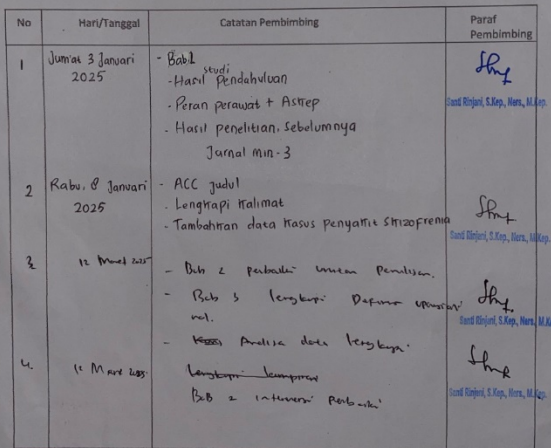 No Hari/Tanggal Catatan Pembimbing Paraf Pembimbing
1 Jum'at 3 Januari 2025
- Bab 1
- Hasil studi Pendahuluan
- Peran perawat + Askep
- Hasil penelitian Sebelumnya
Jurnal min. 3
Santi Rinjani, S.Kep., Ners., M.Kep.
2 Rabu, 8 Januari 2025
- ACC Judul
- Lengkapi Kalimat
- Tambahkan data Kasus penyakit Skizofrenia
Santi Rinjani, S.Kep., Ners., M.Kep.
3 12 Maret 2025
- Bab 2 perbaiki urutan Penulisan.
- Bab 3 lengkapi Definisi operasional
nal.
- Analisa data lengkapi
Santi Rinjani, S.Kep., Ners., M.K
4. 12 Maret 2025
Lengkapi lampiran
Bab 2 intervensi Perbaiki
Santi Rinjani, S.Kep., Ners., M.Kep